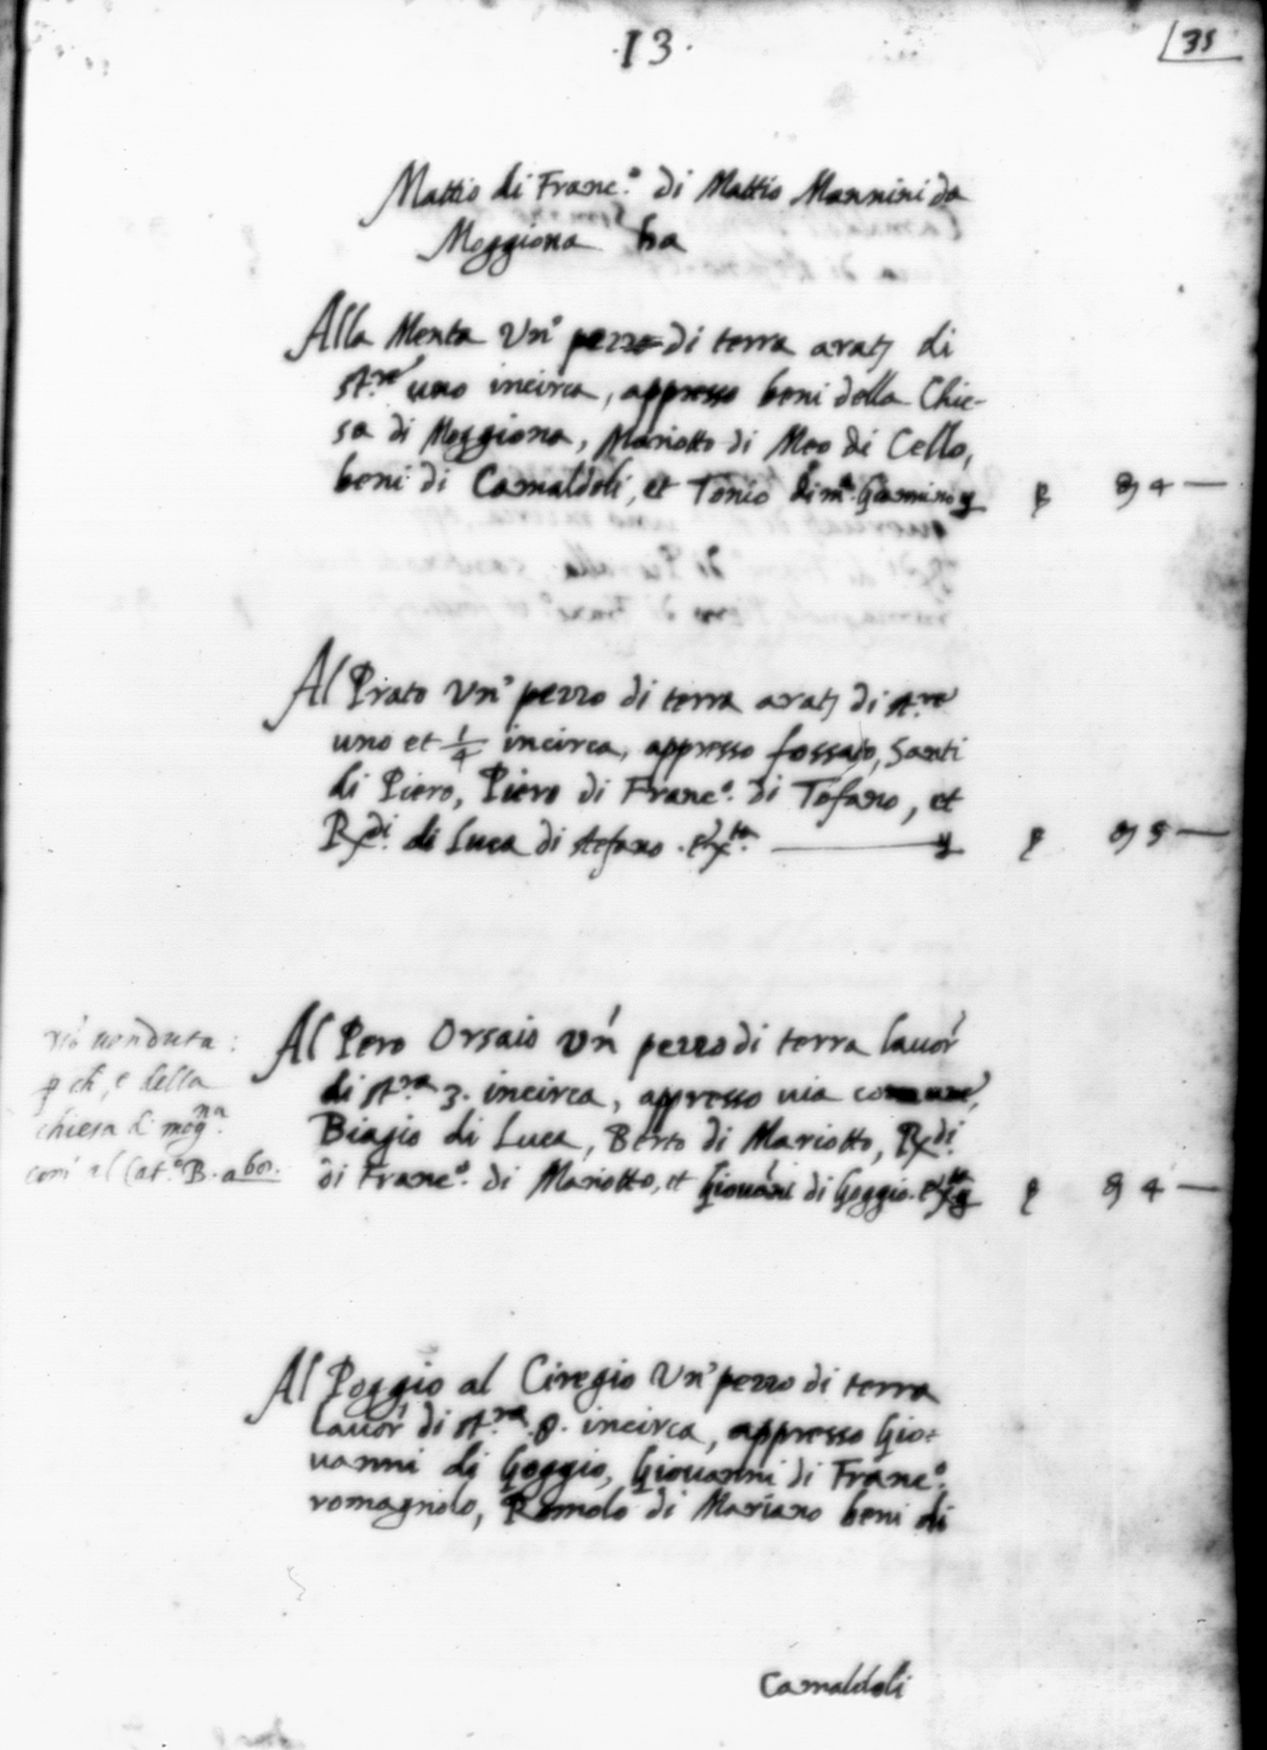 ·13·
35
Mattio di Franc.º di Mattio Mannini da
Moggiona ha
Alla Menta Un' pezzo di terra arat. di
st.re uno incirca, appresso beni della Chie-
sa di Moggiona, Mariotto di Meo di Cello,
beni di Camaldoli, et Tonio di m.º Giannino 4
Al Prato Un' pezzo di terra arat. di st.re
uno et 1/4 incirca, appresso fossato, Santi
di Piero, Piero di Franc.º di Tofano, et
Redi. di Luca di stefano 5
non uenduta:
p ch, e della
chiesa di mog.na
al Cat.º B. a 601.
Al Pero Orsaio Un' pezzo di terra lauor'
di st.ra 3. incirca, appresso uia comune,
Biagio di Luca, Berto di Mariotto, Redi.
di Franc.º di Mariotto, et Giouanni di Goggio 4
Al Poggio al Ciregio Un' pezzo di terra
lauor' di st.ra 8. incirca, appresso Gio-
uanni di Goggio, Giouanni di Franc.º
romagnolo, Romolo di Mariano beni di
Camaldoli